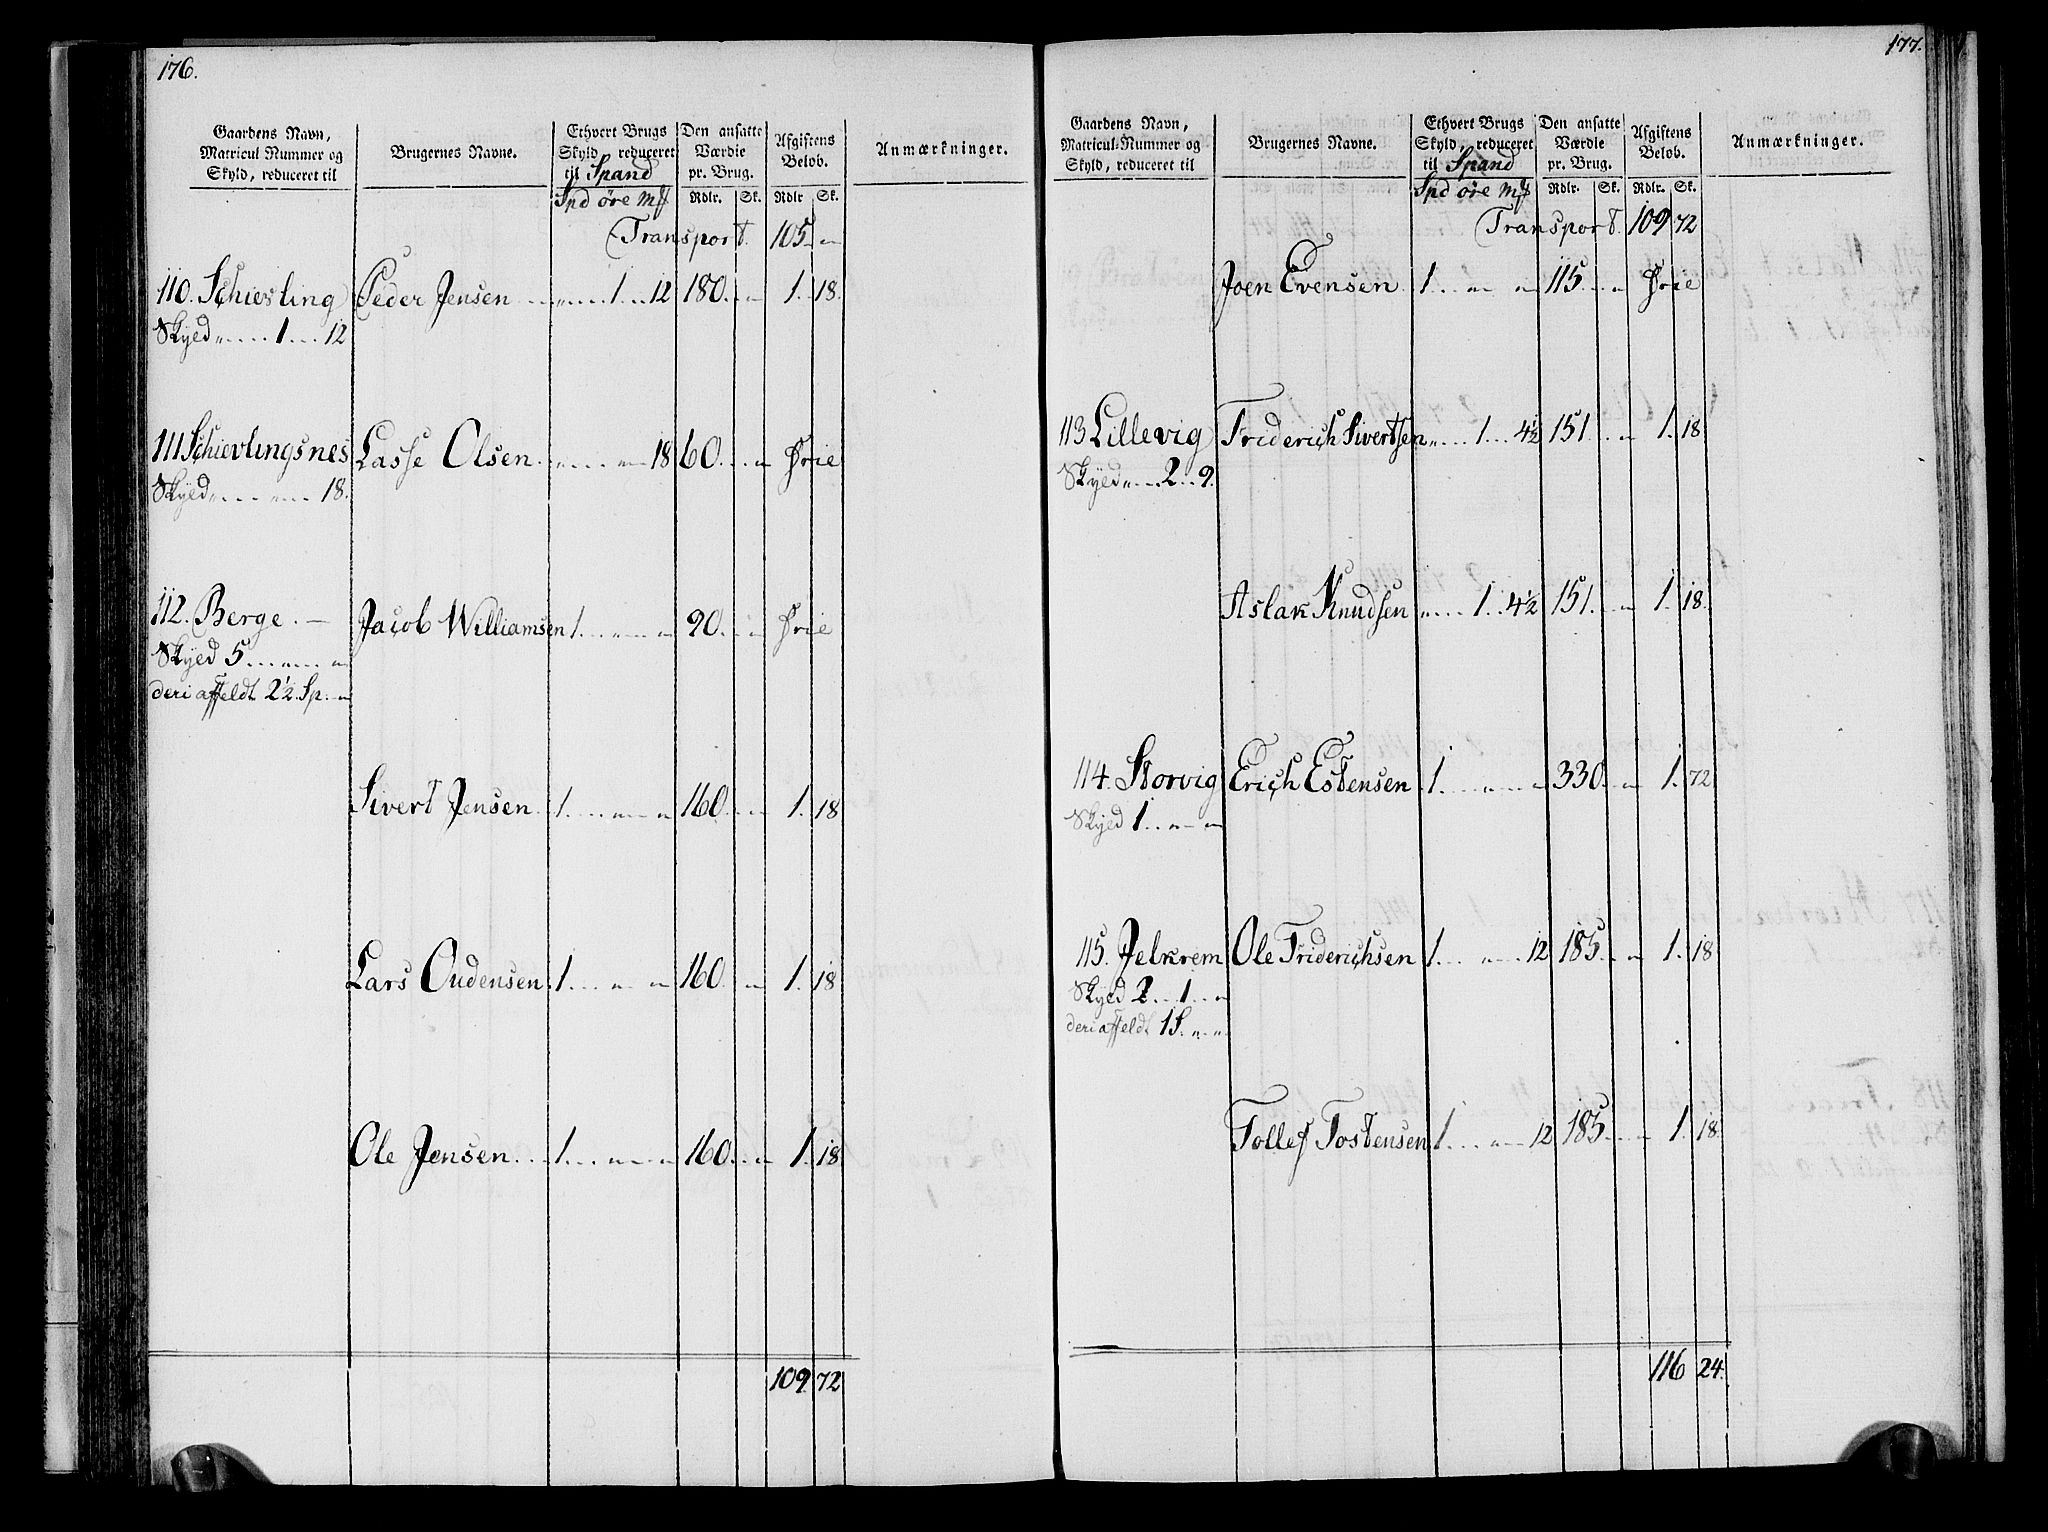 176.
Gaardens Navn, Matricul Nummer og Skyld, reduceret til | Brugernes Navne. | Ethvert Brugs Skyld, reduceret til Spand | Den ansatte Værdie pr. Brug. | Afgiftens Beløb. | Anmærkninger.
Spd øre mƒ | Rdlr. | Sk. | Rdlr | Sk.
Transport. 105 "
110. Schiesling Peder Jensen " 1 12 180 " 1. 18.
Skyed " 1 12
111 Schievlingsnes Lasse Olsen " " 18 60 " frie
Skyed " " 18.
112. Berge. Jacob Williamsen 1 " " 90 " frie
Skyed 5 " "
deri affeldt 2½ Sp. "
Sivert Jensen 1 " " 160 " 1. 18
Lars Oudensen 1 " " 160 " 1. 18
Ole Jensen 1 " " 160 " 1. 18
109. 72
177.
Gaardens Navn, Matricul-Nummer og Skyld, reduceret til | Brugernes Navne. | Ethvert Brugs Skyld, reduceret til Spand | Den ansatte Værdie pr. Brug. | Afgiftens Beløb. | Anmærkninger.
Spd øre mƒ | Rdlr. | Sk. | Rdlr. | Sk.
Transport. 109 72
Joen Evensen 1 " " 115 " frie
113 Lillevig Friderich Sivertsen " 1 4½ 151 " 1. 18
Skyed " 2 9.
Aslak Knudsen " 1 4½ 151 " 1. 18.
114. Storvig Erich Estensen 1 " " 330 " 1. 72
Skyed 1 " "
115. Jelkrem Ole Friderichsen 1 " 12 185 " 1. 18
Skyed 2 1 "
deri affeldt 1 S. " "
Tollef Tostensen 1 " 12 185 " 1. 18
116 24.